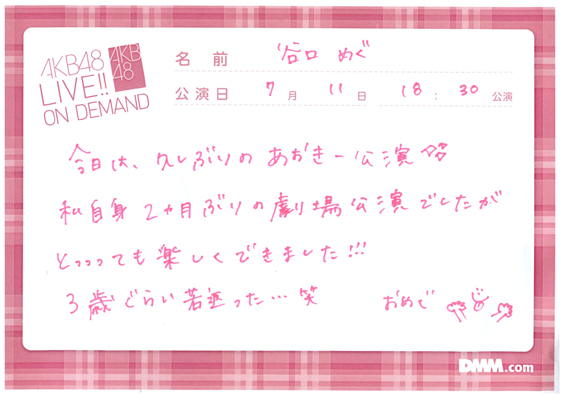 AKB48
LIVE!!
ON DEMAND
AKB
48
名前 谷口 めぐ
公演日 7月 11日 18:30 公演
今日は、久しぶりの あおきー公演
私自身 2ヵ月ぶりの劇場公演でしたが
とっっっても楽しくできました!!!
3歳ぐらい若返った…笑 おめぐ
DMM.com